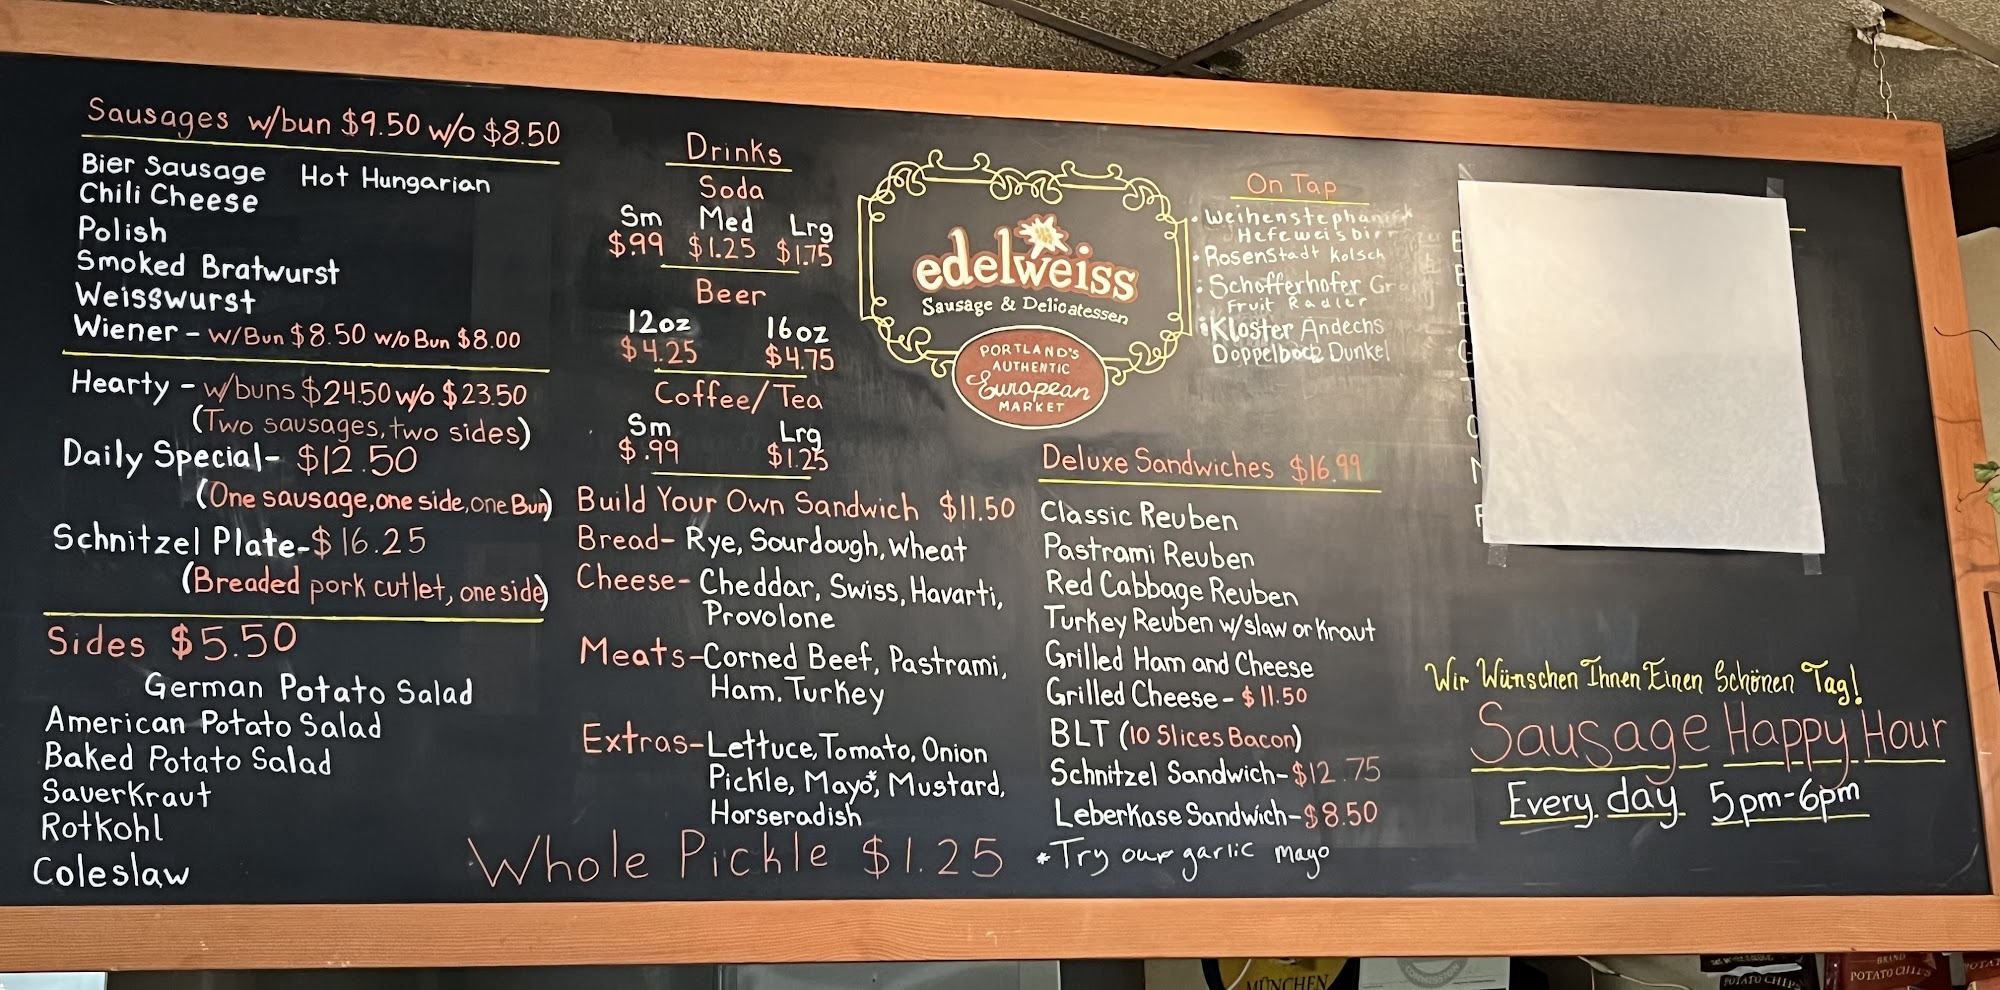 Sausages w/bun $9.50 w/o $8.50
Bier Sausage Hot Hungarian
Chili Cheese
Polish
Smoked Bratwurst
Weisswurst
Wiener - w/Bun $8.50 w/o Bun $8.00
Hearty - w/buns $24.50 w/o $23.50
(Two sausages, two sides)
Daily Special - $12.50
(One sausage, one side, one Bun)
Schnitzel Plate - $16.25
(Breaded pork cutlet, one side)
Sides $5.50
German Potato Salad
American Potato Salad
Baked Potato Salad
Sauerkraut
Rotkohl
Coleslaw
Drinks
Soda
Sm Med Lrg
$.99 $1.25 $1.75
Beer
12oz 16oz
$4.25 $4.75
Coffee/Tea
Sm Lrg
$.99 $1.25
Build Your Own Sandwich $11.50
Bread - Rye, Sourdough, Wheat
Cheese - Cheddar, Swiss, Havarti,
Provolone
Meats - Corned Beef, Pastrami,
Ham, Turkey
Extras - Lettuce, Tomato, Onion
Pickle, Mayo*, Mustard,
Horseradish
Whole Pickle $1.25
edelweiss
Sausage & Delicatessen
PORTLAND'S
AUTHENTIC
European
MARKET
On Tap
• Weihenstephaner
Hefeweisbier
• Rosenstadt Kolsch
• Schofferhofer
Fruit Radler
• Kloster Andechs
Doppelbock Dunkel
Deluxe Sandwiches $16.99
Classic Reuben
Pastrami Reuben
Red Cabbage Reuben
Turkey Reuben w/slaw or Kraut
Grilled Ham and Cheese
Grilled Cheese - $11.50
BLT (10 Slices Bacon)
Schnitzel Sandwich - $12.75
Leberkase Sandwich - $8.50
*Try our garlic mayo
Wir Wünschen Ihnen Einen Schönen Tag!
Sausage Happy Hour
Every day 5pm-6pm
MÜNCHEN
BRAND
POTATO CHIPS
POTATO CHIPS